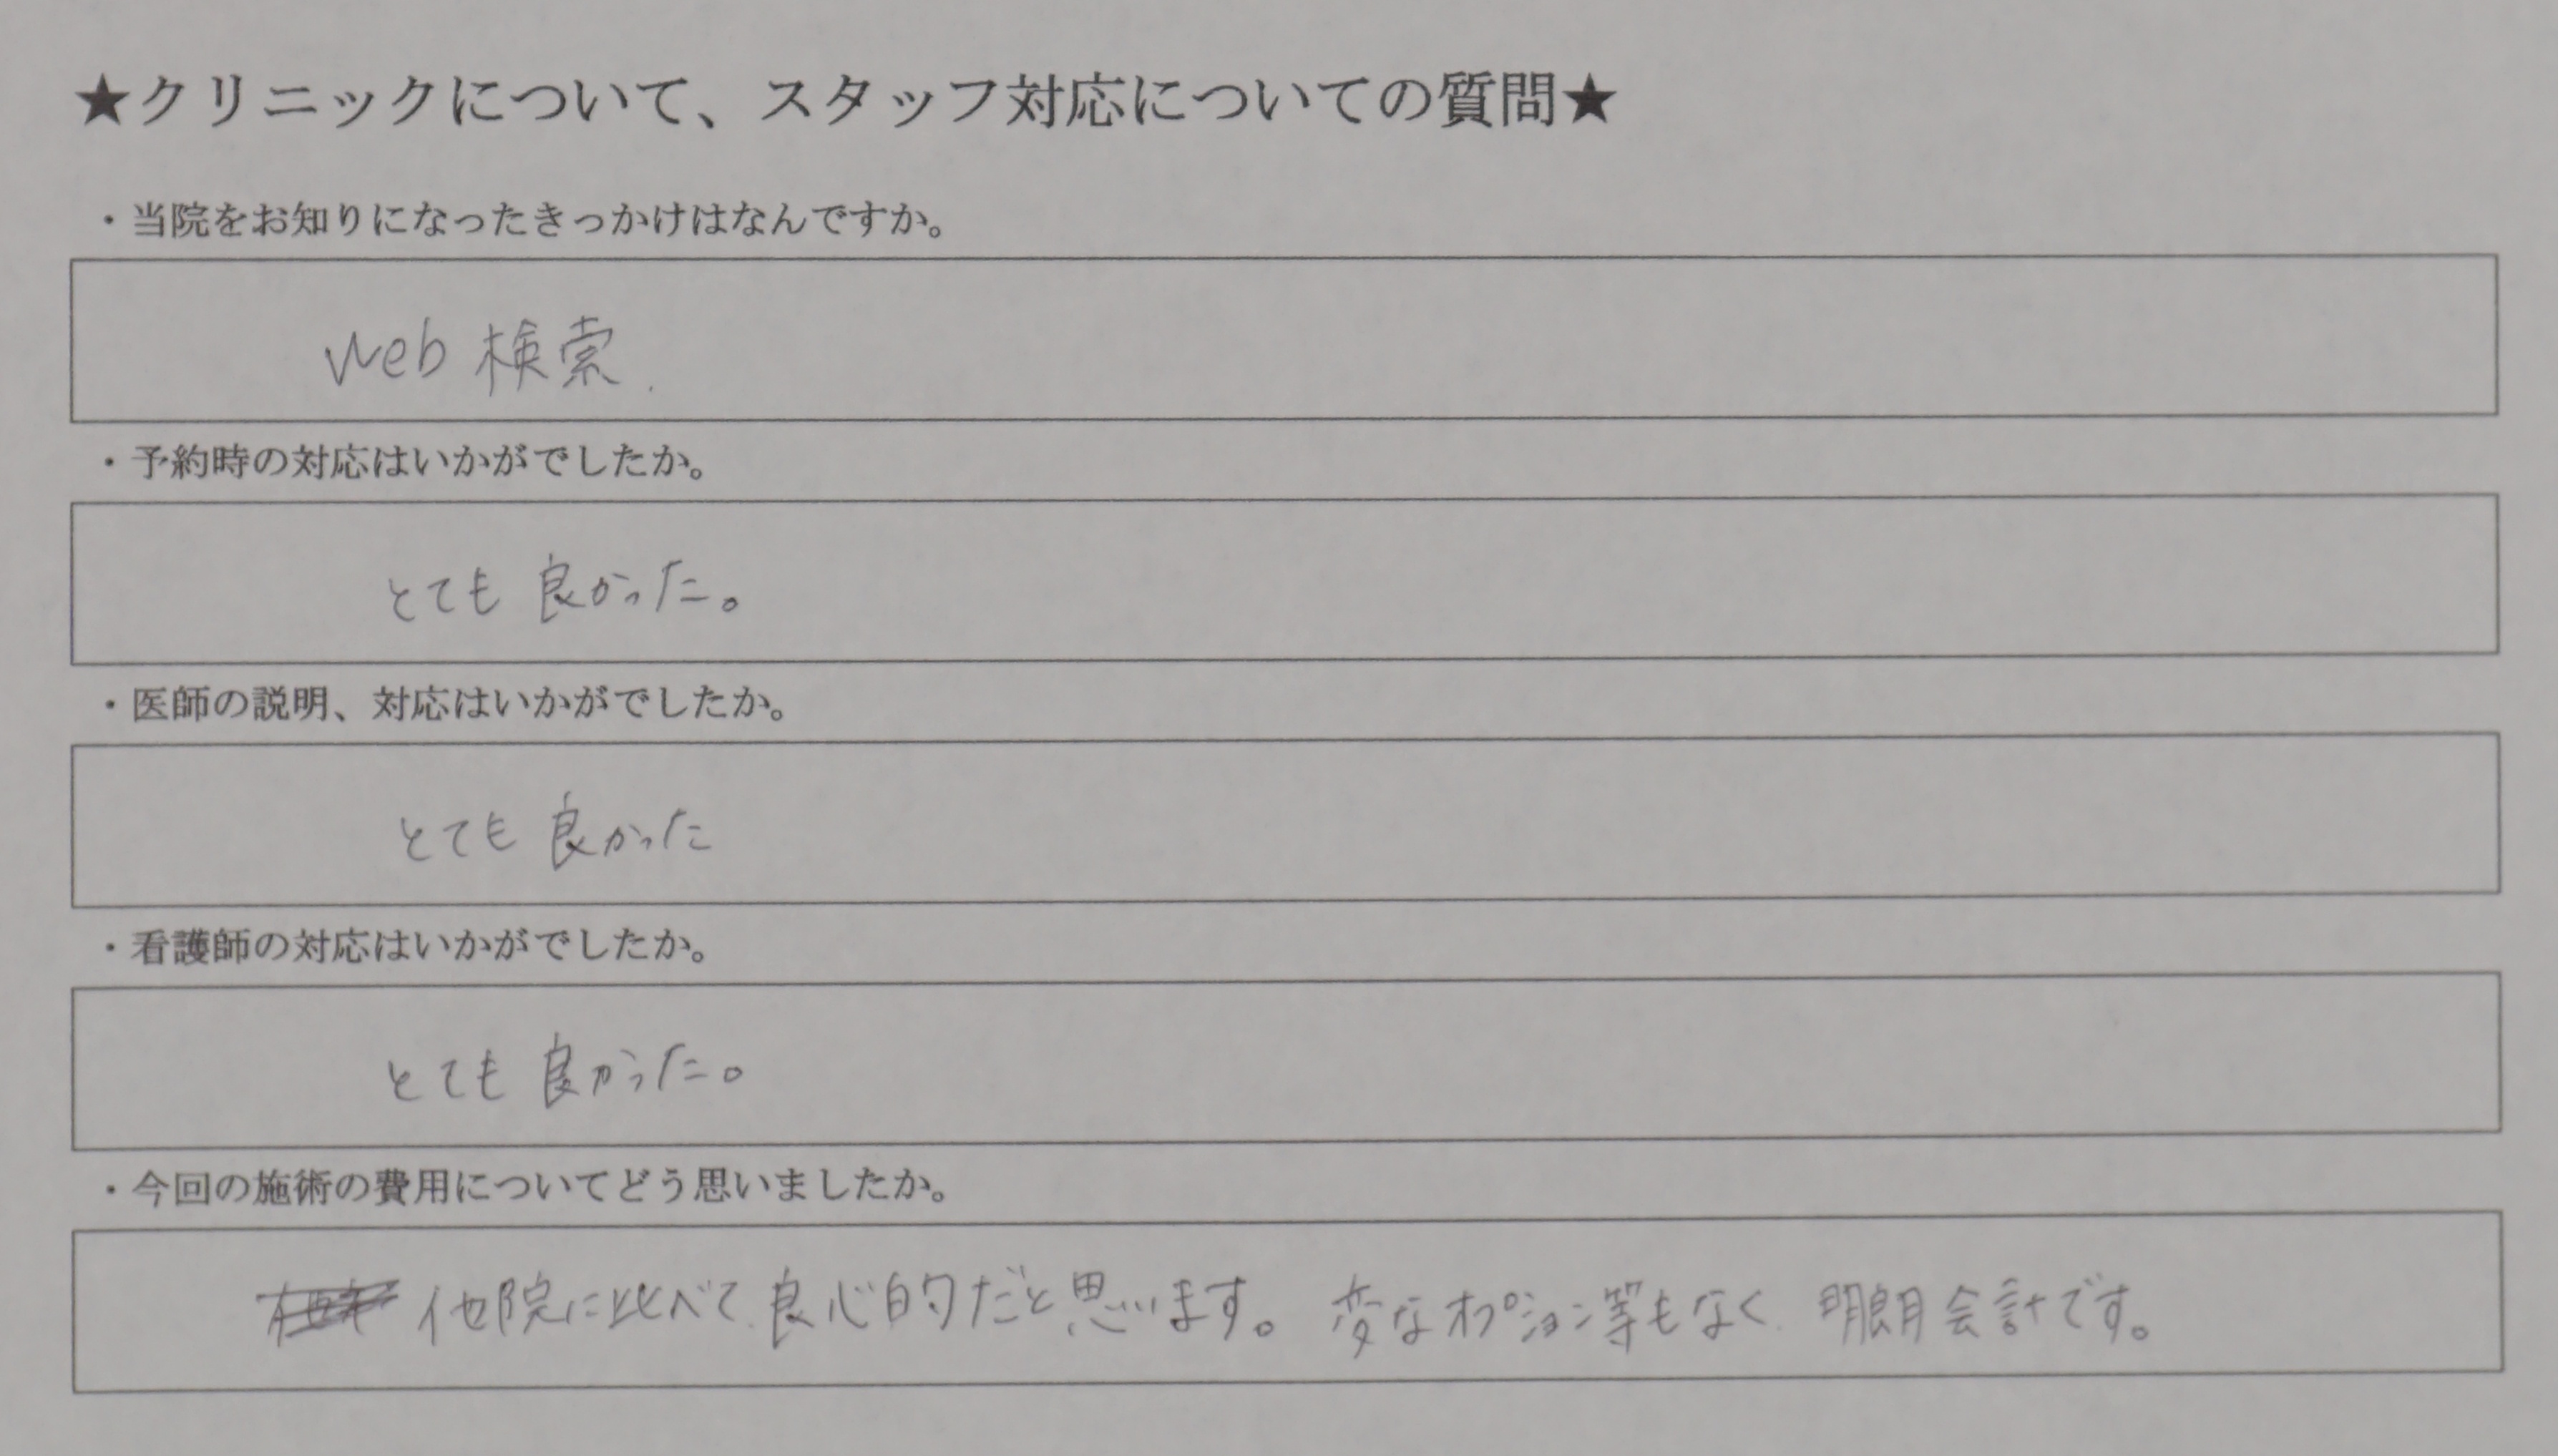 ★クリニックについて、スタッフ対応についての質問★
・当院をお知りになったきっかけはなんですか。
Web 検索.
・予約時の対応はいかがでしたか。
とても良かった。
・医師の説明、対応はいかがでしたか。
とても良かった
・看護師の対応はいかがでしたか。
とても良かった。
・今回の施術の費用についてどう思いましたか。
他院に比べて、良心的だと思います。変なオプション等もなく、明朗会計です。